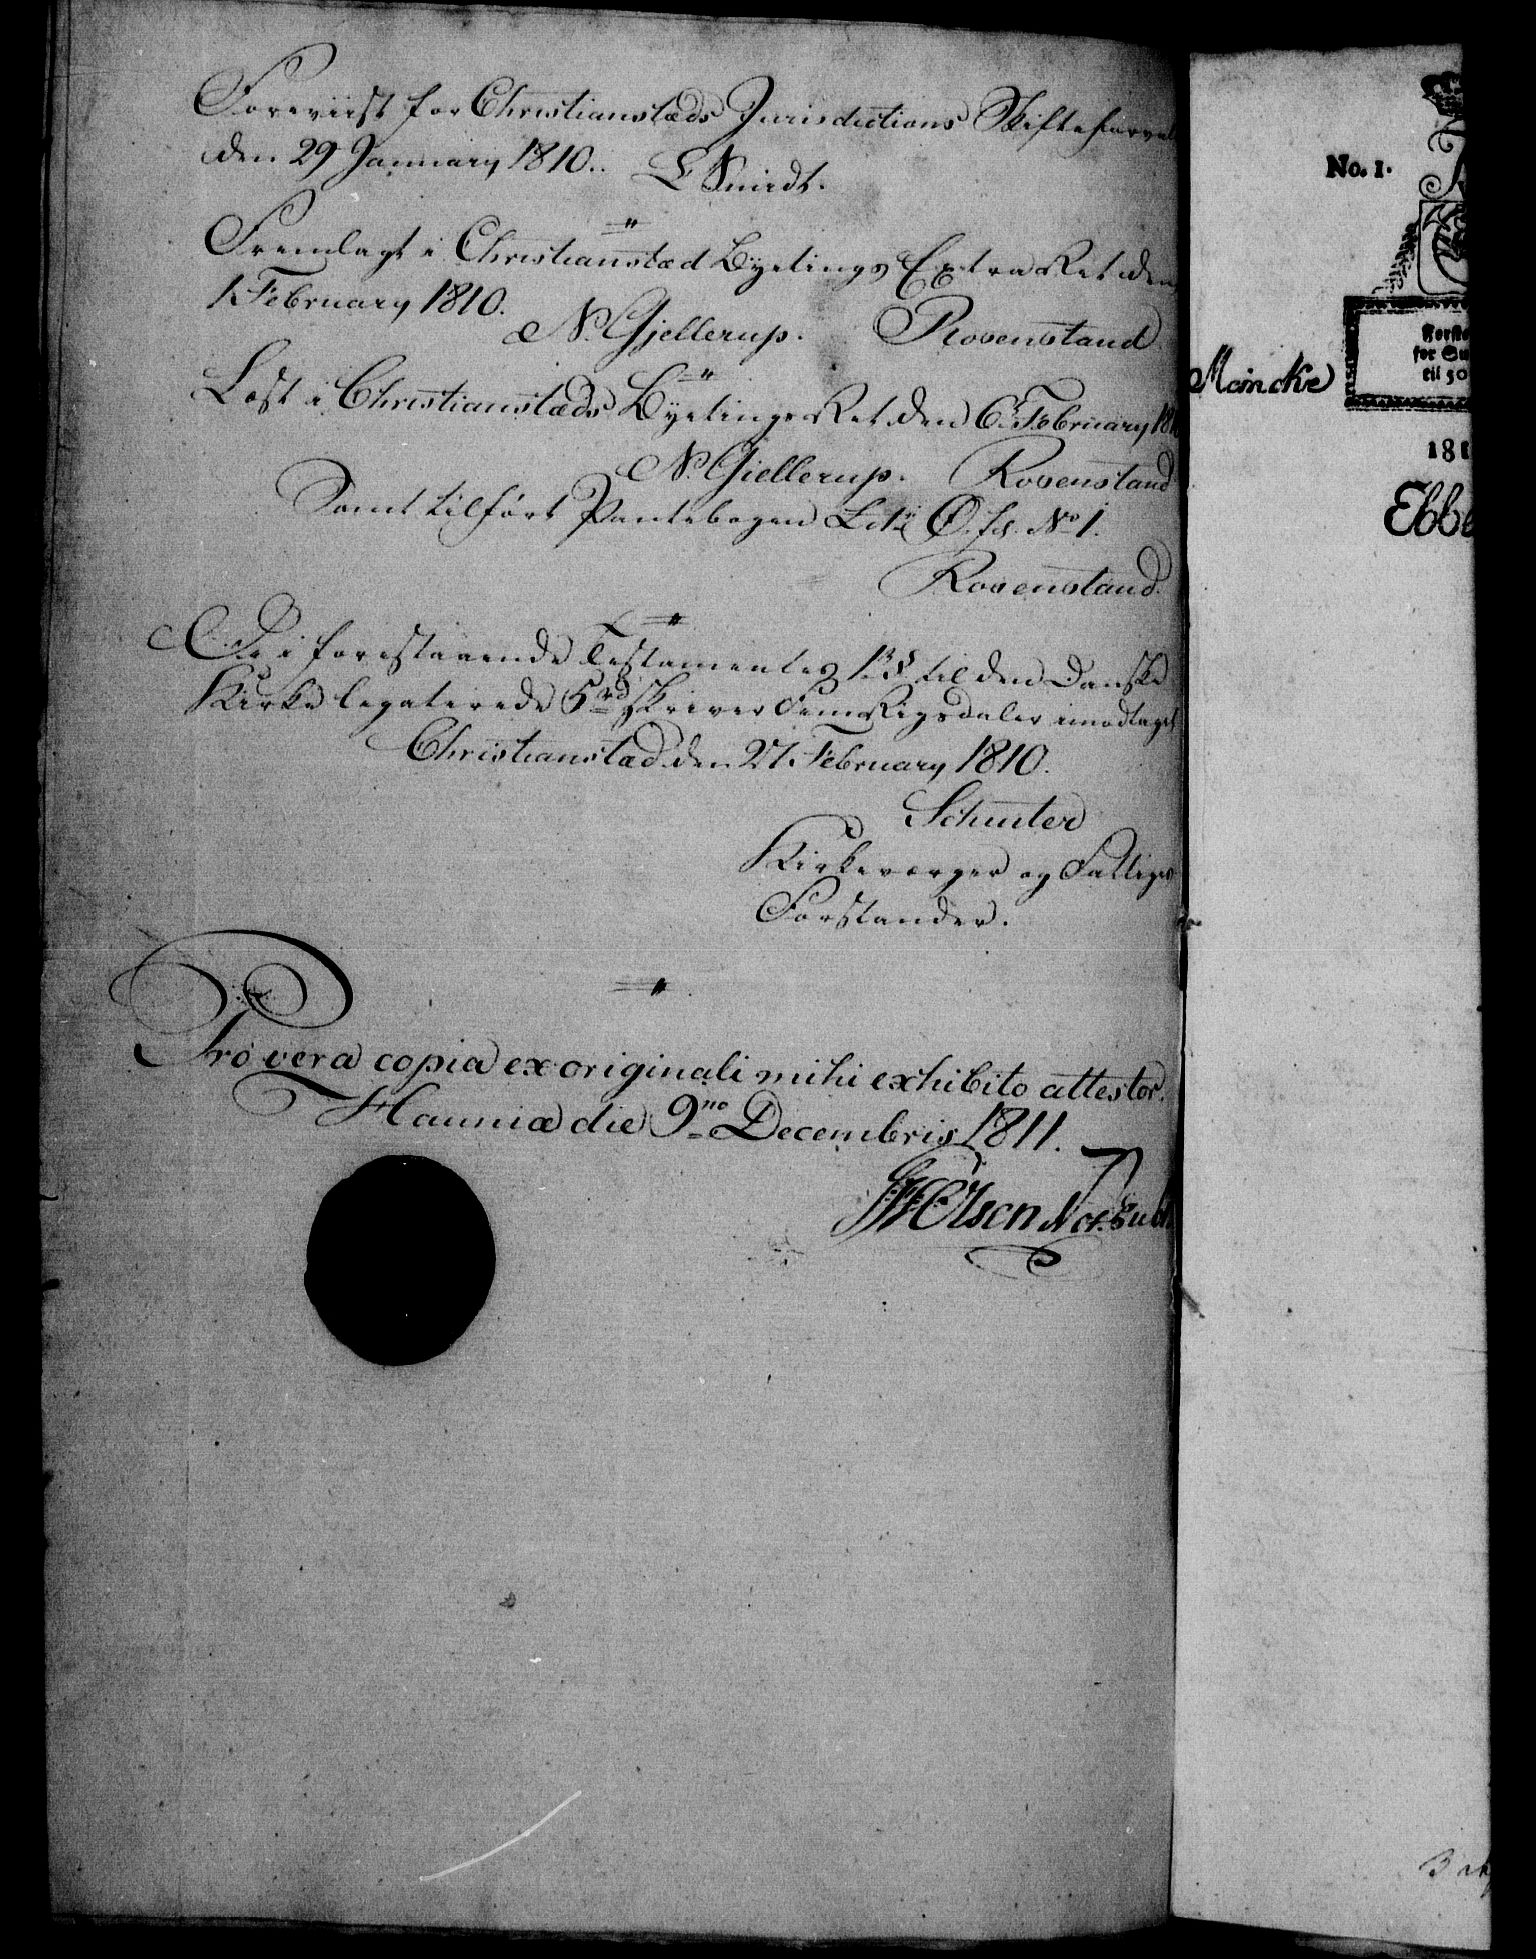 Foreviist for Christianstæds Jurisdictions Skifteforval
den 29 January 1810.. L Smidt.
Fremlagt i Christianstæd Byetings Extra Ret den
1 February 1810.
N. Gjellerup. Rosenstand
Læst i Christianstæds Byetings Ret den 6. February 181
N. Gjellerup. Rosenstand
Samt tilført Pantebogen Litr Ø. fol. No 1.
Rosenstand
De i forestaaende Testamentes 13 § til den Danske
Kirke legaterede 5 rd skriver Fem Rigsdaler imodtaget
Christianstæd den 27. February 1810.
Schuster
Kirkeværger og Fattiges
Forstander.
Pro vera copia ex originali mihi exhibito attestor.
Hauniæ die 9no Decembris 1811.
Olsen Not: Publ
No. 1.
for Su
til 50
Meincke
181
Ebbe
3